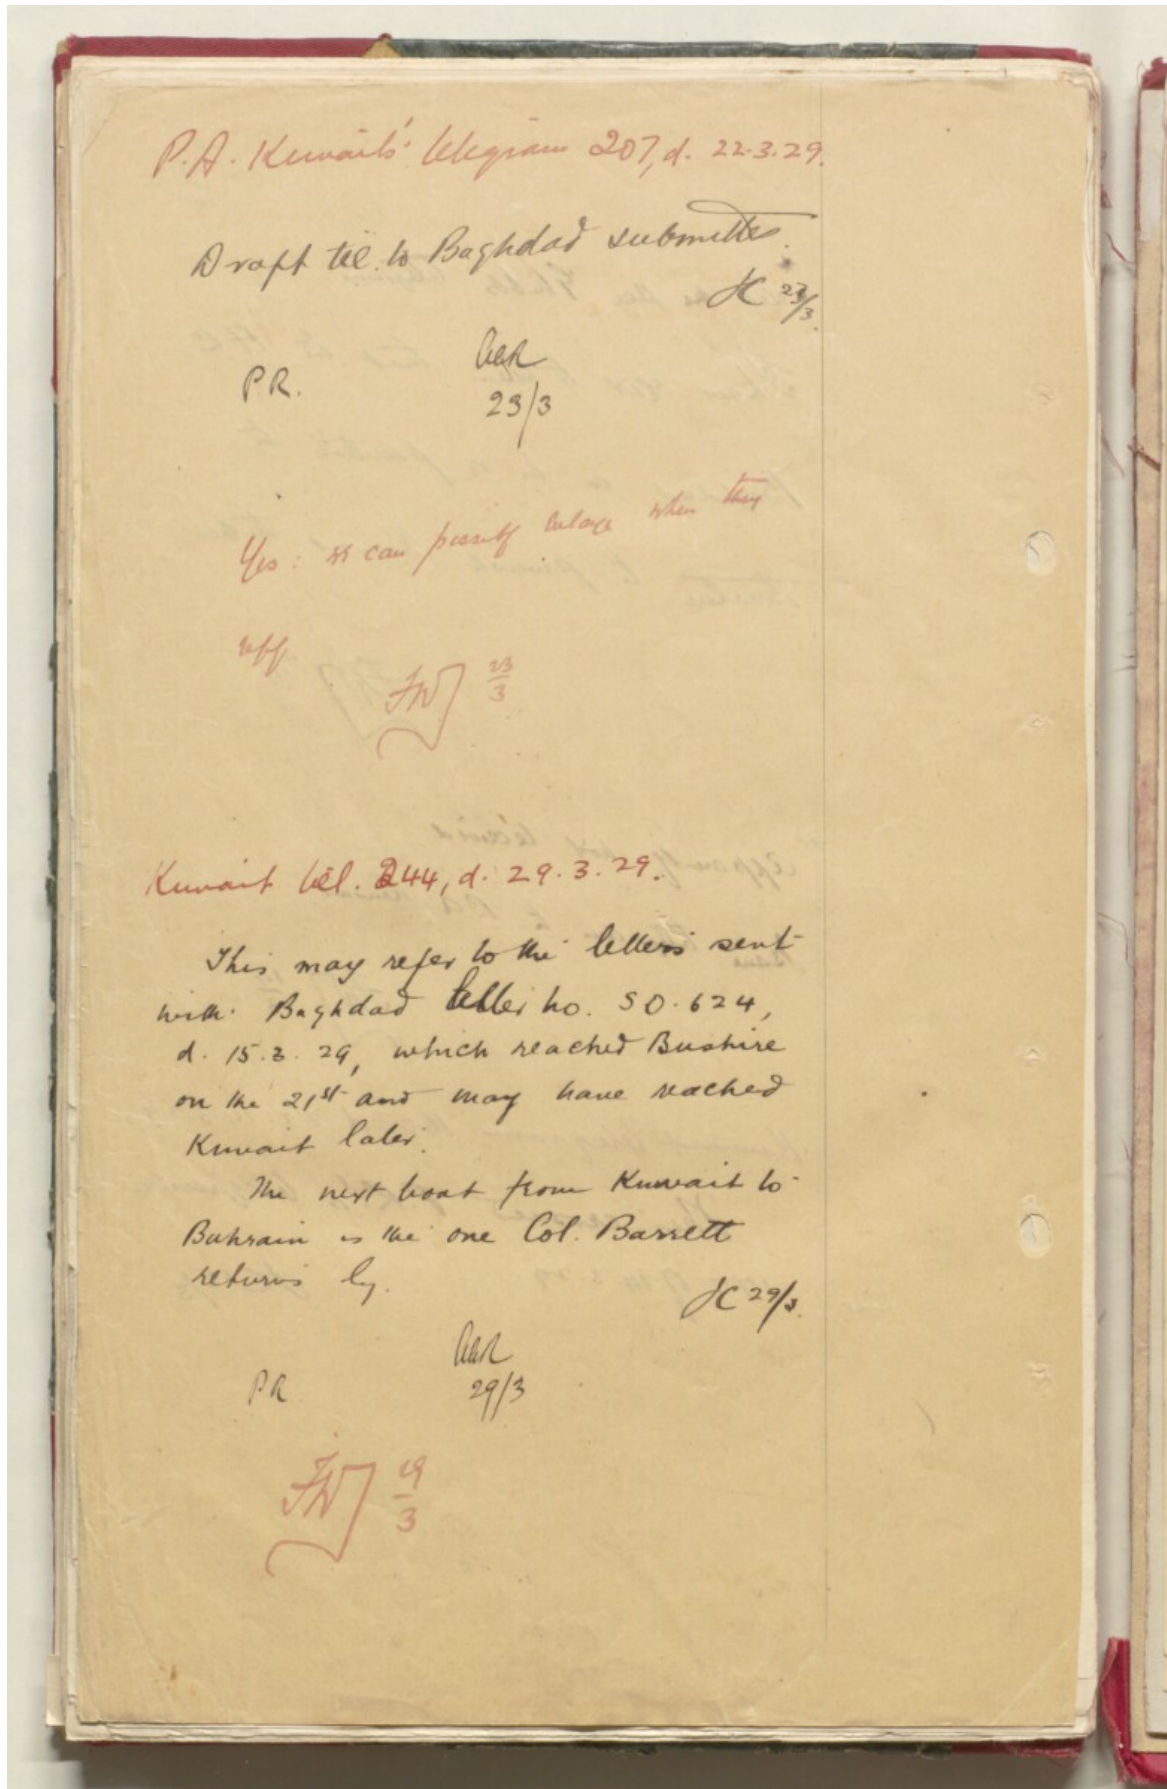 P.A. Kuwait's telegram 207, d. 22.3.29.
Draft tel. to Baghdad submitted.
JC 23/3.
P.R.
23/3
Yes: we can possibly enlarge when they
23/3
Kuwait tel. 244, d. 29.3.29.
This may refer to the letters sent
with Baghdad letter no. SO.624,
d. 15.3.29, which reached Bushire
on the 21st and may have reached
Kuwait later.
The next boat from Kuwait to
Bahrain is the one Col. Barrett
returns by.
JC 29/3.
PR
29/3
29/3